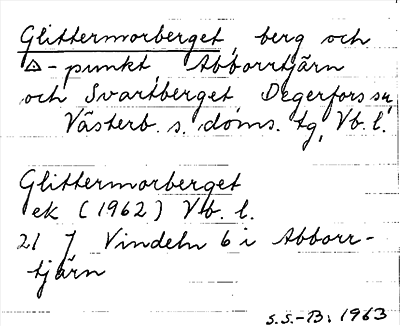 Glittermorberget, berg och
△-punkt, Abborrtjärn
och Svartberget, Degerfors sn,
Västerb. s. doms. tg, Vb. l.
Glittermorberget
ek (1962) Vb. l.
21 J Vindeln 6 i Abborr-
tjärn
S.S.-B: 1963